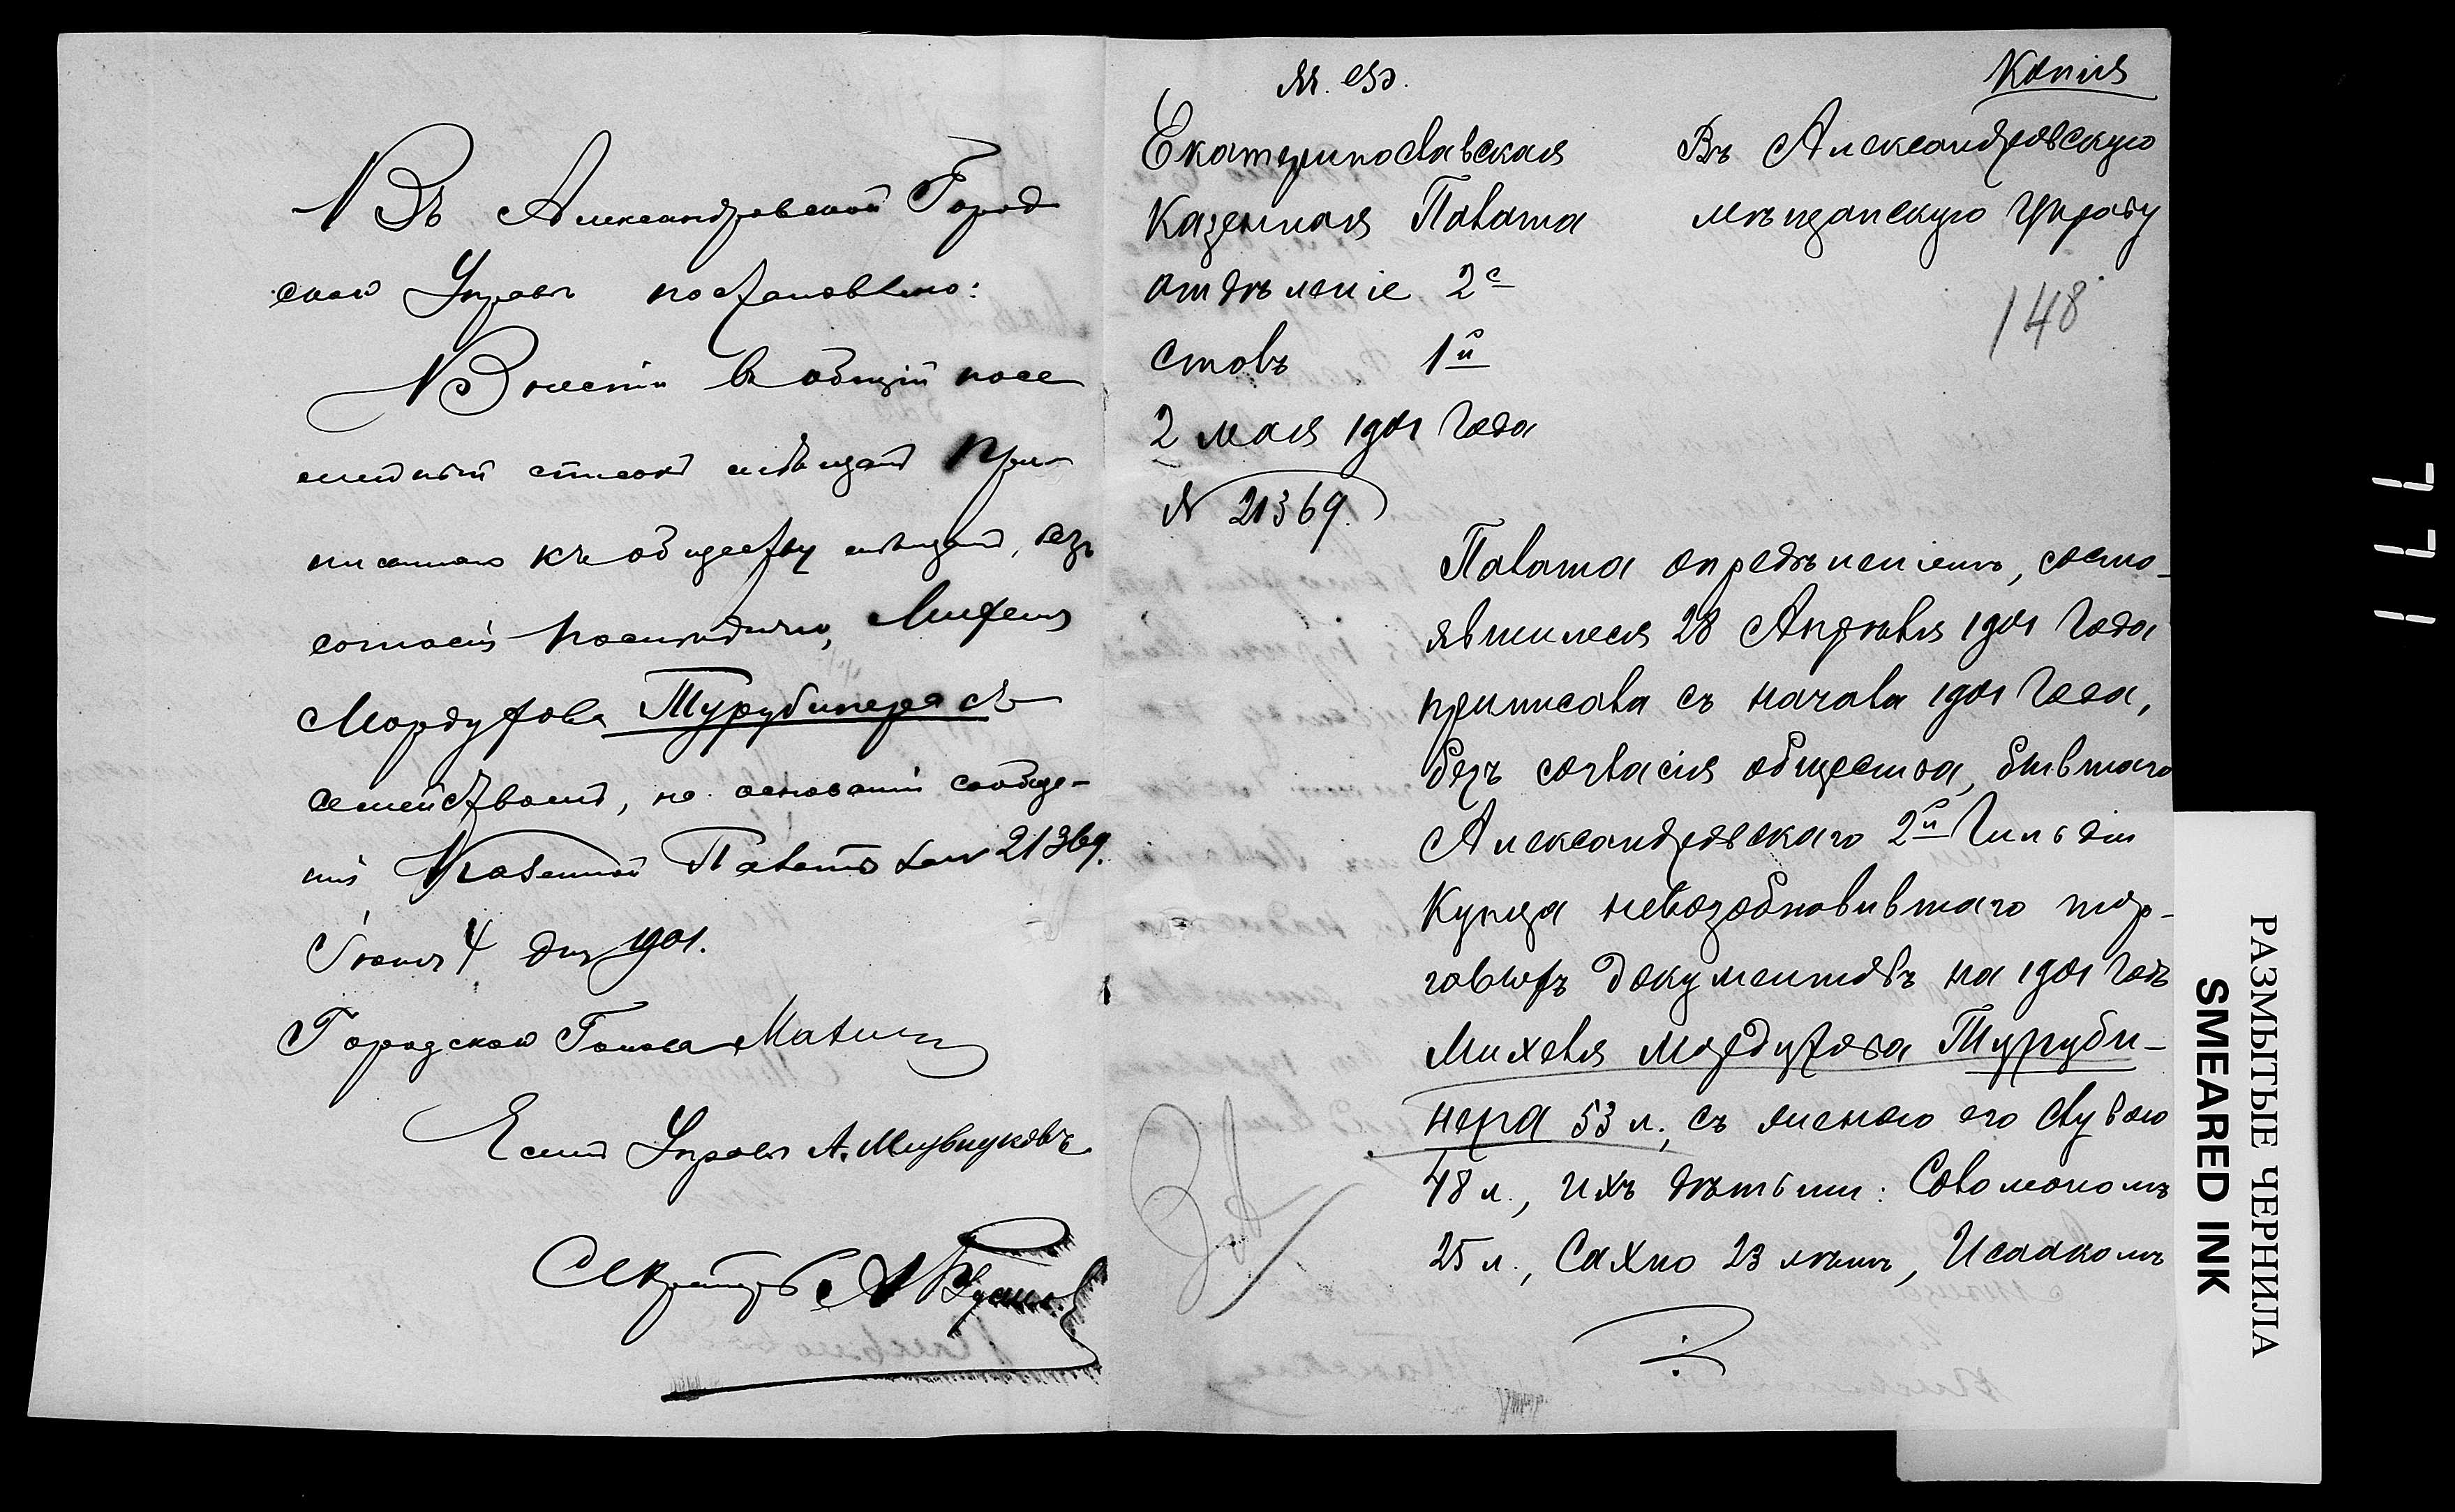 Въ Александровской Город
ской Управѣ постановлено:
Внести въ общій посе
мейный списокъ мѣщанъ при-
писаннаго къ обществу мѣщанъ, безъ
согласія послѣдняго, Михеля
Мордухова Турубинера съ
семействомъ, на основаніи сообще-
нія Казенной Палаты за № 21369.
Іюня 4 дня 1901.
Городской Голова
Члены Управы А.
Секретарь А
М. Ф.
Копія
Екатеринославская
Казенная Палата
отдѣленіе 2е
столъ 1й
2 мая 1901 года
№ 21369.
Въ Александровскую
мѣщанскую Управу
148
Палата опредѣленіемъ, состо-
явшимся 28 Апрѣля 1901 года
приписала съ начала 1901 года,
безъ согласія общества, бывшаго
Александровскаго 2й Гильдіи
Купца невозобновившаго тор-
говыхъ документовъ на 1901 годъ
Михеля Мордухова Туруби-
нера 53 л., съ женою его
48 л., ихъ дѣтьми: Соломономъ
25 л., Сахно 23 лѣтъ, Исаакомъ
РАЗМЫТЫЕ ЧЕРНИЛА
SMEARED INK
177